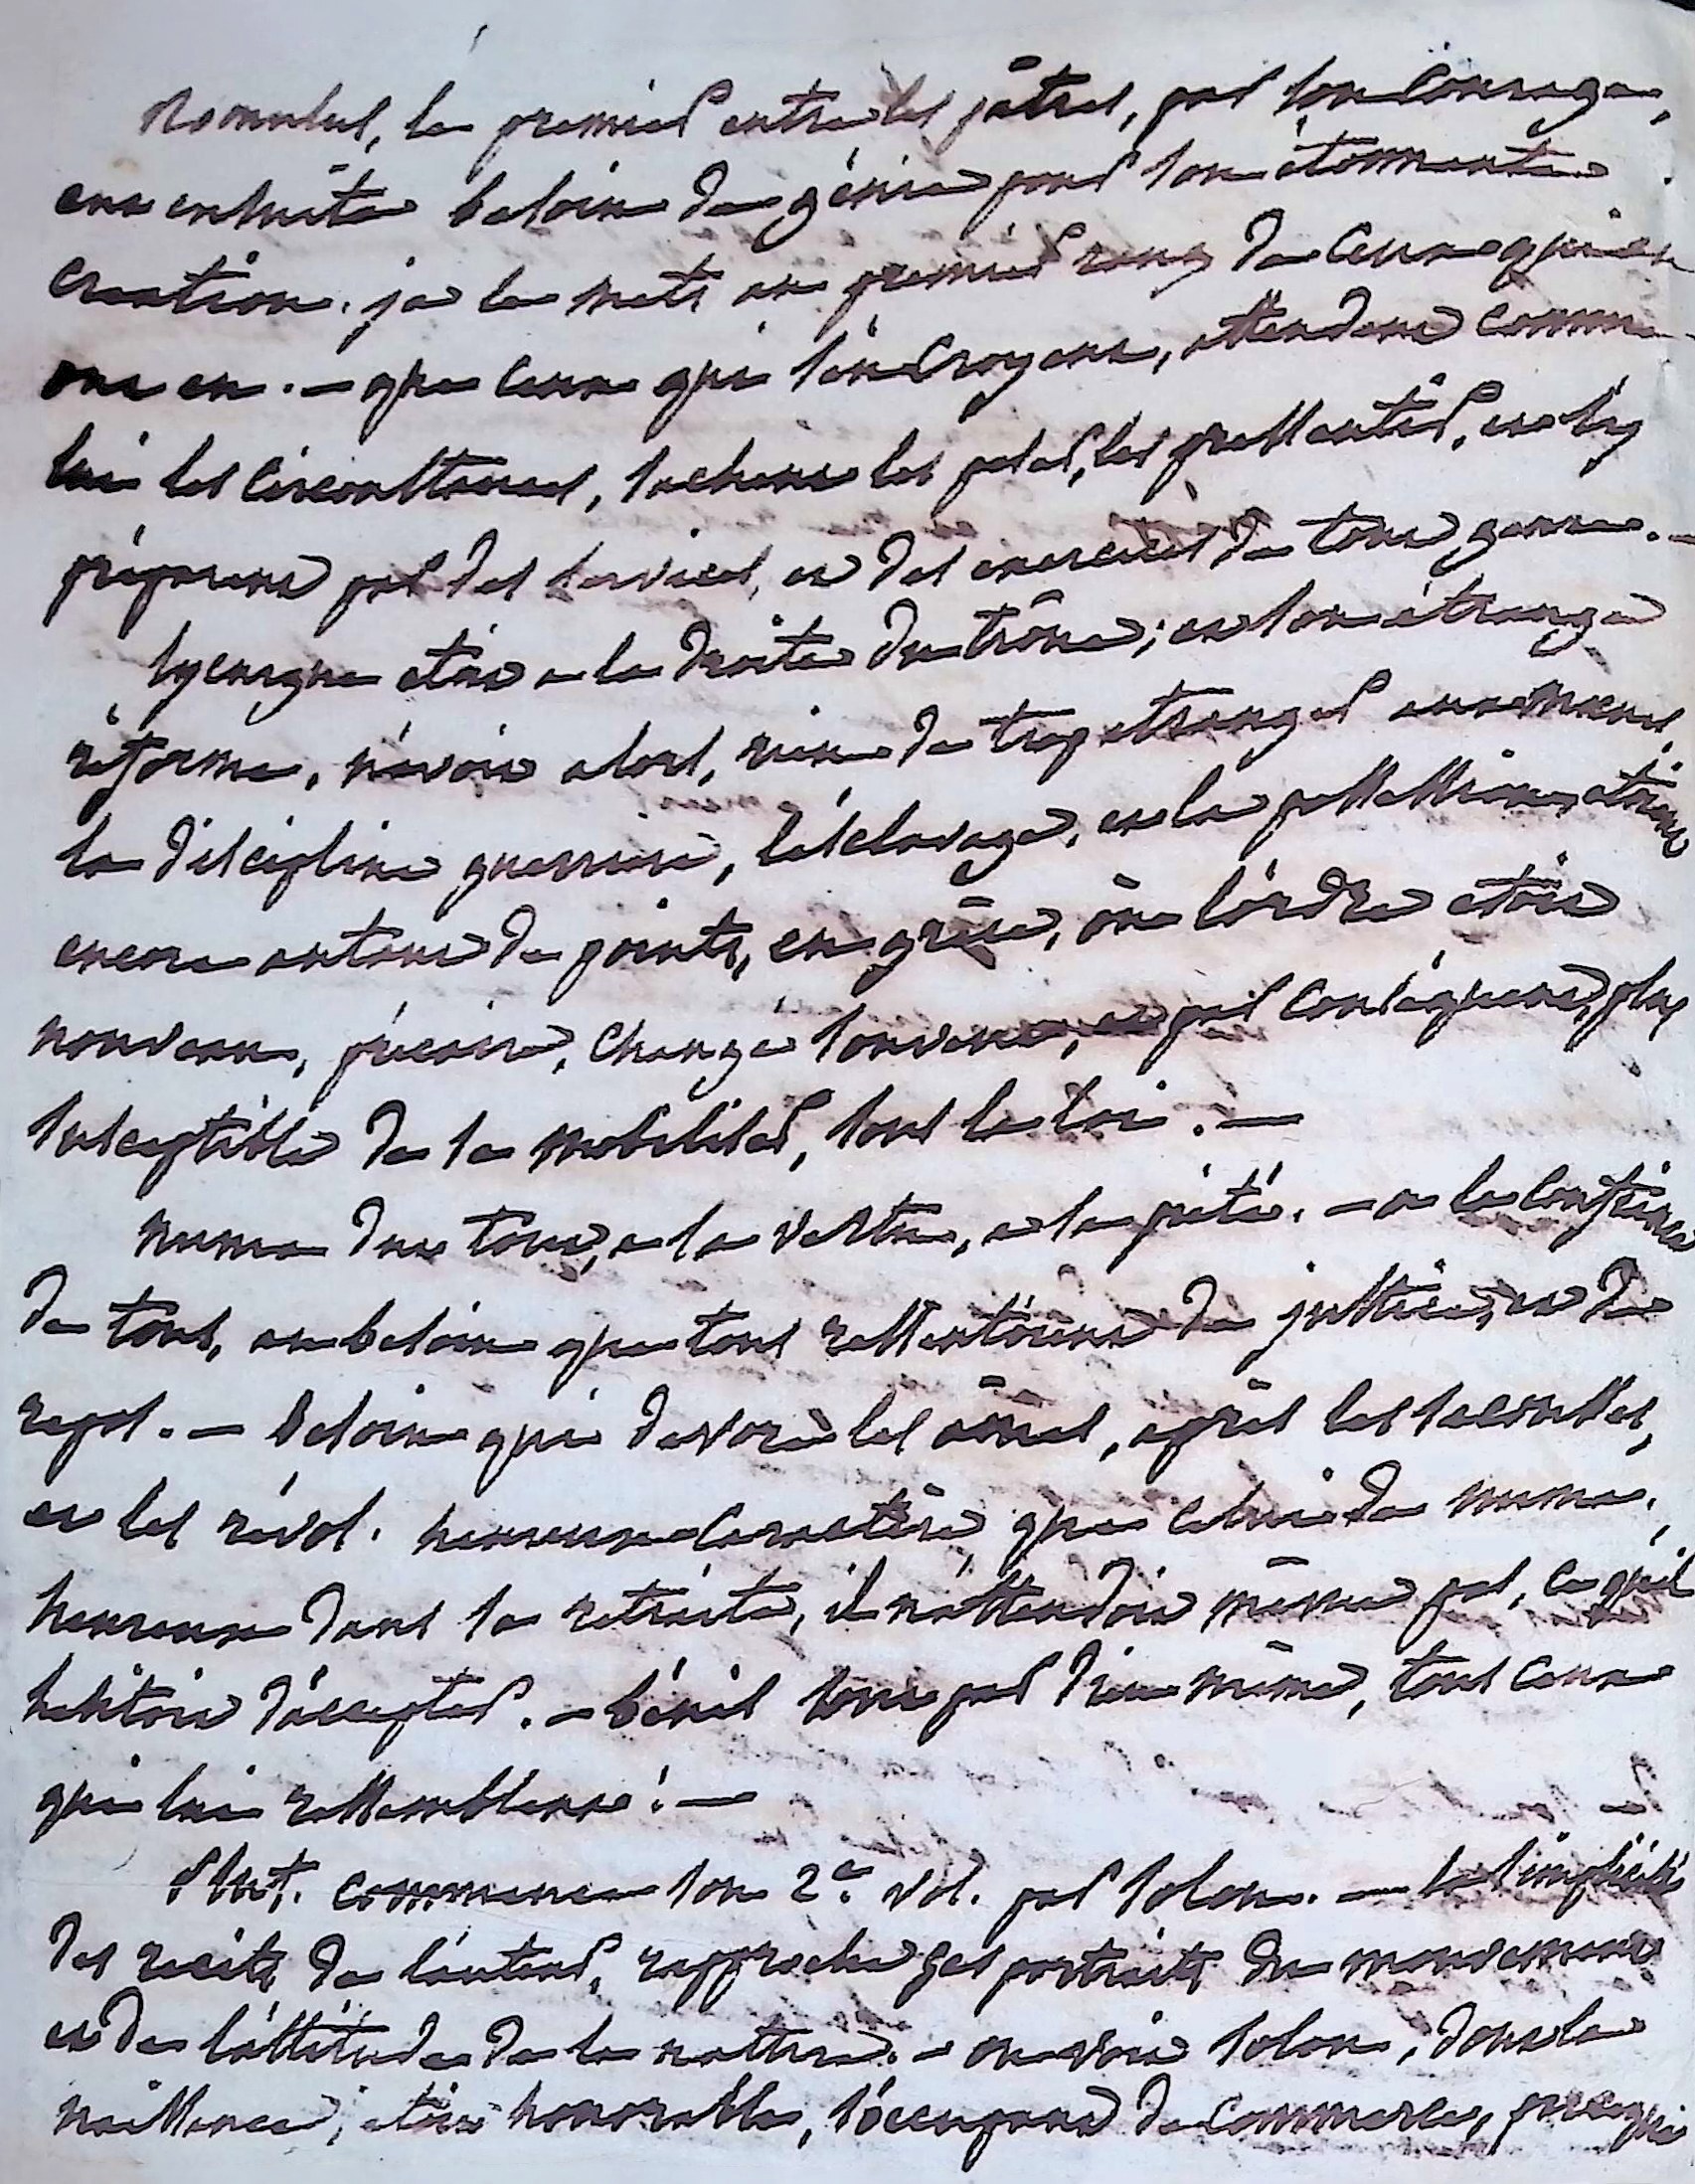 Romulus, le premier entre les pâtres, par son courage,
eut ensuite besoin de génie pour son étonnante
création. je le mets au premier rang de ceux qui en
ont eu. – que ceux qui s'en croyent, attendent comme
lui les circonstances, sachent les peser, les pressentir, et s'y
préparent par des services, et des exercices de tout genre. –
lycurgue etoit a la droite du trône; et son étrange
réforme, n'avoit alors, rien de trop etranger aux mœurs.
la discipline guerriere, l'esclavage, et la possession, etoient
encore autant de points, en grèce, où l'ordre etoit
nouveau, précaire, changé souvent, et par conséquent, plus
susceptible de se mobiliser, sous la loi. –
numa dut tout, a sa vertu, a sa piété. – a la confiance
de tous, au besoin que tous ressentoient de justice, et de
repos. – besoin qui devore les âmes, après les secousses,
et les révol. heureux caractère, que celui de numa.
heureux dans sa retraite, il n'attendoit même pas, ce qu'il
hésitoit d'accepter. – bénis sont par dieu même, tous ceux
qui lui ressemblent! –
Plut. commence son 2e. vol. par solon. – la simplicité
des recits de l'auteur, rapproche ses portraits du mouvement
et de l'attitude de la nature. – on voit solon, dont la
naissance, etoit honorable, s'occupant de commerce, parce qui